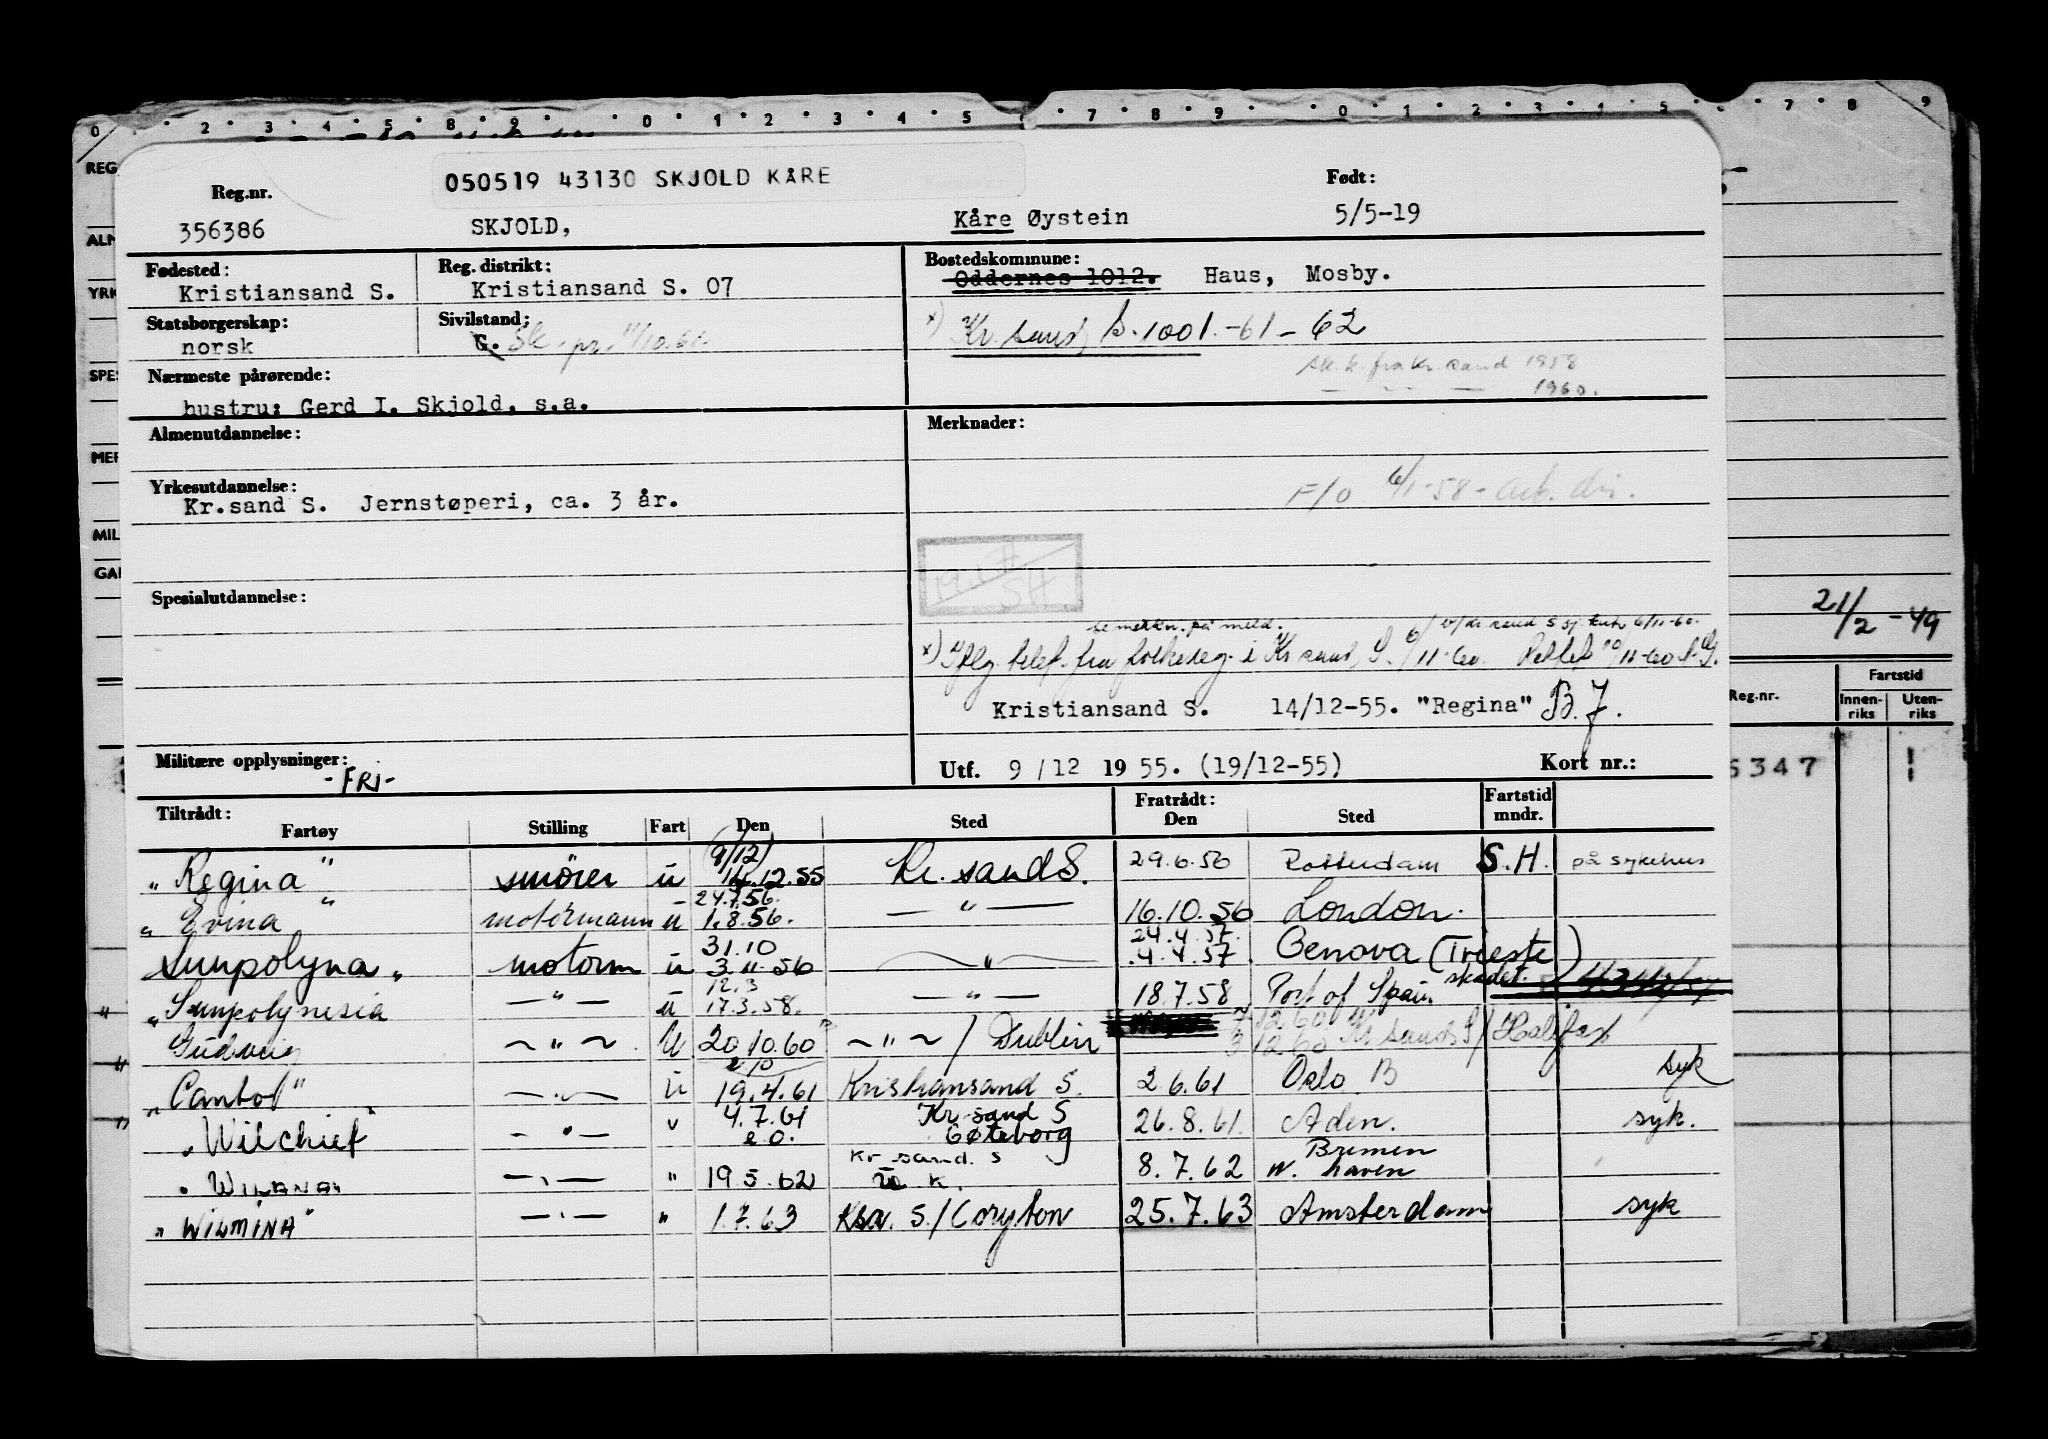 0 2 3 4 5 8 9 0 1 2 3 4 5 7 8 9 0 1 2 3 4 5 7 8 9
050519 43130 SKJOLD KÅRE
Reg.nr. Født:
356386 SKJOLD, Kåre Øystein 5/5-19
Fødested: Reg. distrikt: Bostedskommune:
Kristiansand S. Kristiansand S. 07 Oddernes 1012. Haus, Mosby.
Statsborgerskap: Sivilstand: x) Kr.sand S. 1001.-61-62
norsk G.
Nærmeste pårørende: fra Kr.sand 1958
hustru: Gerd I. Skjold, s.a. 1960.
Almenutdannelse: Merknader:
Yrkesutdannelse:
Kr.sand S. Jernstøperi, ca. 3 år. F/O 6/1-58-
Spesialutdannelse:
se merkn. på meld.
x) Iflg. telef. fra folkereg. i Kr.sand S.
Kristiansand S. 14/12-55. "Regina" B.J.
Militære opplysninger: Utf. 9/12 1955. (19/12-55) Kort nr.:
-FRI-
Tiltrådt: Fratrådt: Fartstid
Fartøy Stilling Fart Den Sted Den Sted mndr.
(9/12)
"Regina" smører u 14.12.55 Kr.sand S. 29.6.56 Rotterdam S.H. på sykehus
24.7.56
"Evina" motormann u 1.8.56. — " — 16.10.56 London.
31.10 24.4.57.
Sunpolyna" motorm u 3.11.56 — " — 4.4.57 Genova (Trieste)
12.3 skadet.
"Sunpolynesia — " — u 17.3.58. — " — 18.7.58 Port of Spain
Gudveig — " — U 20.10.60 — " — / Dublin 12.60 Kr.sand S/Halifax
"Cantos" — " — u 19.4.61 Kristiansand S. 2.6.61 Oslo B syk
"Wilchief" — " — u 4.7.61 Kr.sand S 26.8.61. Aden. syk.
e.o. Gøteborg
Kr.sand. S Bremen
"WILANA" — " — " 19.5.62 8.7.62 W. haven
"WILMINA" — " — " 1.7.63 S./Coryton 25.7.63 Amsterdam syk
21/2-49
Reg.nr. Fartstid
Innen-riks Uten-riks
5347
REG
ALM
YRK
SPES
MER
MIL
GAR